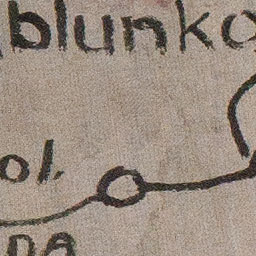 blunko
ol.
na